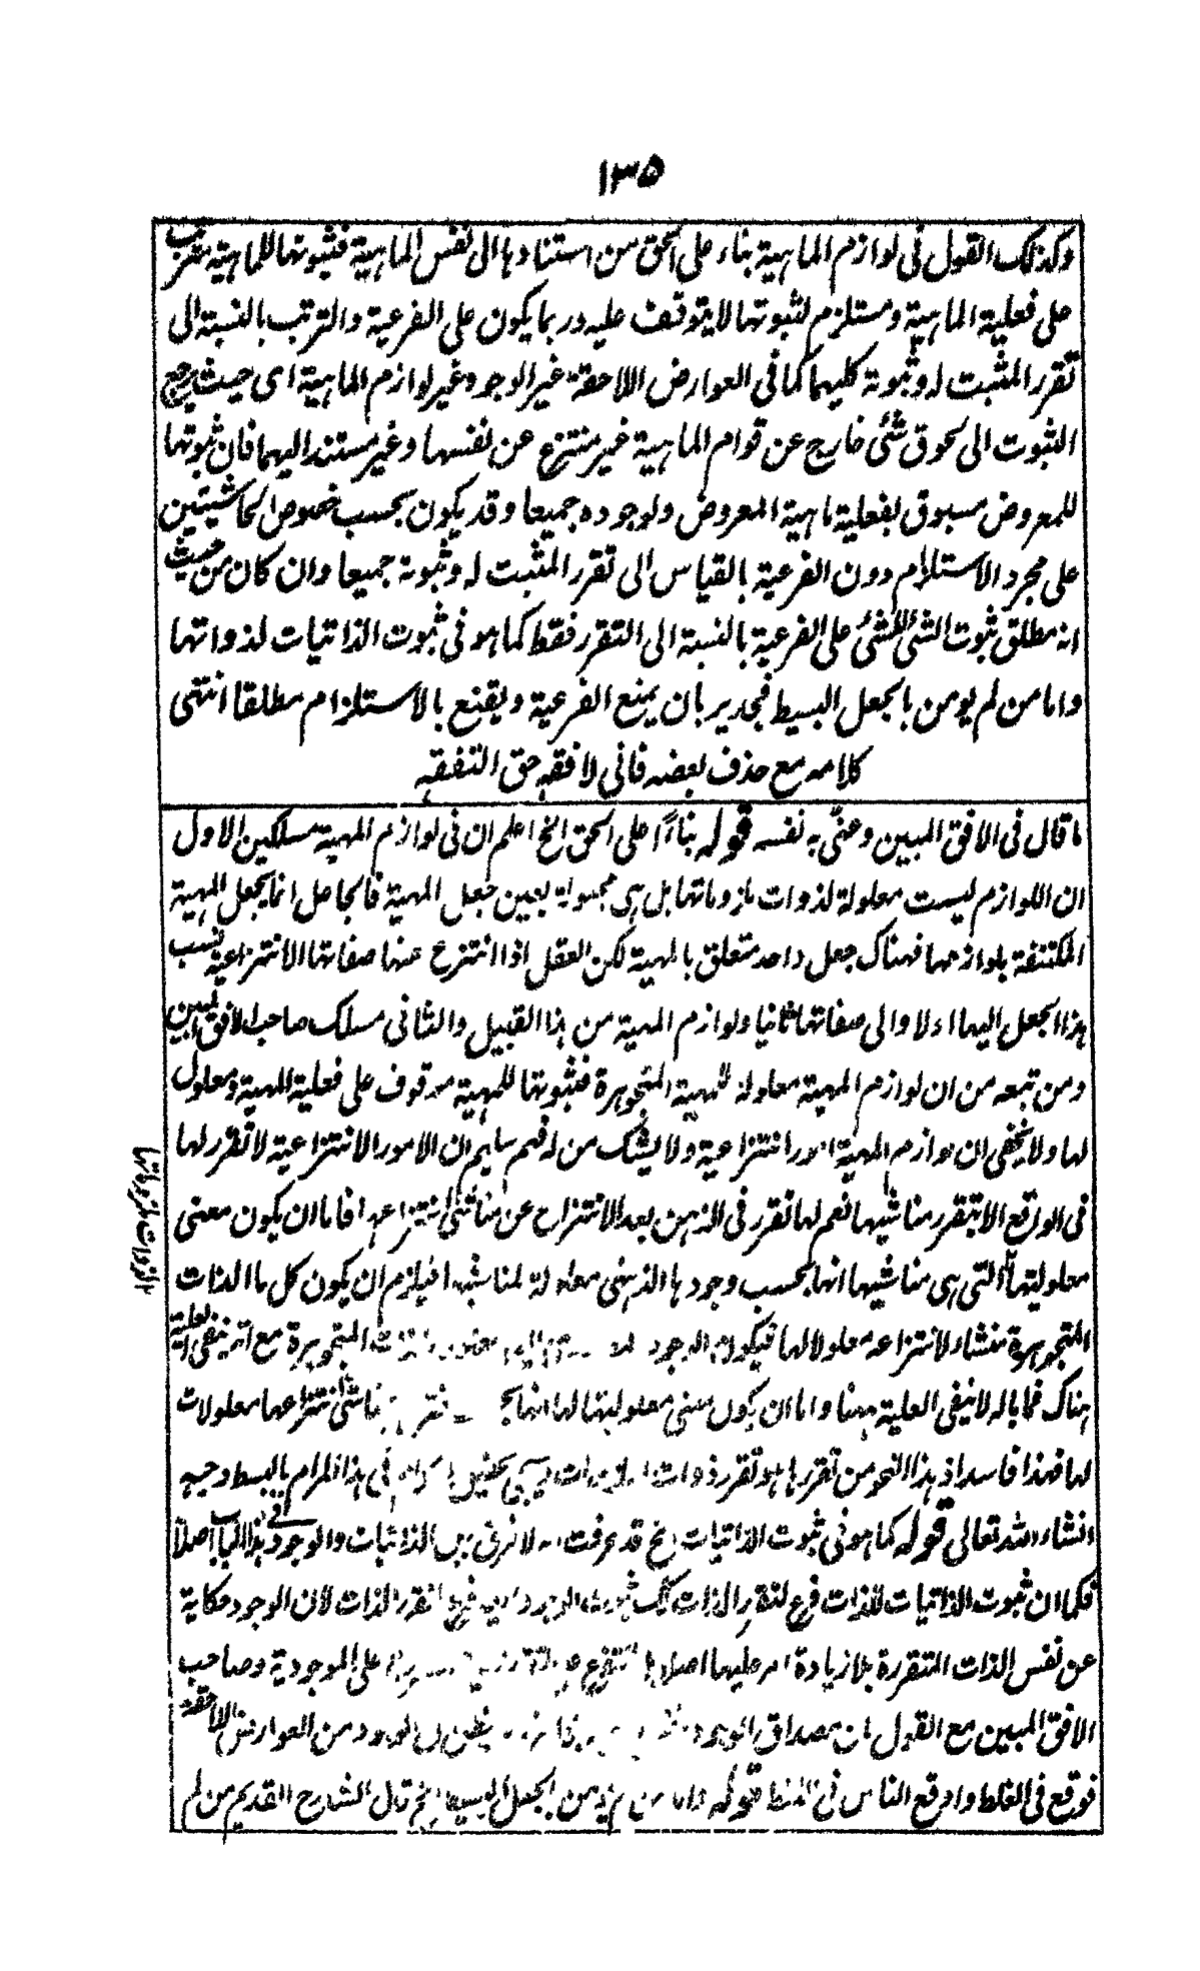 ١٣٥
وكذلك القول فى لوازم الماهية بناء على الحق من استنادها الى نفس الماهية فثبوتها للماهية مترتب
على فعلية الماهية ومستلزم لثبوتها لا يتوقف عليه وربما يكون على الفرعية والترتب بالنسبة الى
تقرر المثبت له وثبوته كليهما كما فى العوارض اللاحقة غير الوجود وغير لوازم الماهية اى حيث يرجع
الثبوت الى لحوق شئ خارج عن قوام الماهية غير منتزع عن نفسها وغير مستند اليهما فان ثبوتها
للمعروض مسبوق بفعلية ماهية المعروض ولوجوده جميعا وقد يكون بحسب خصوص الحاشيتين
على مجرد الاستلزام دون الفرعية بالقياس الى تقرر المثبت له وثبوته جميعا وان كان من حيث
انه مطلق ثبوت الشئ للشئ على الفرعية بالنسبة الى التقرر فقط كما هو فى ثبوت الذاتيات لذواتها
واما من لم يومن بالجعل البسيط فجدير بان يمنع الفرعية ويقنع بالاستلزام مطلقا انتهى
كلامه مع حذف بعضه فانى لا افقه حق التفقه
ما قال فى الافق المبين وعنّى به نفسه قوله بناءً على الحق الخ اعلم ان فى لوازم المهية مسلكين الاول
ان اللوازم ليست معلولة لذوات ملزوماتها بل هى مجعولة بعين جعل المهية فالجاعل انما يجعل المهية
المكتنفة بلوازمها فهناك جعل واحد متعلق بالمهية لكن العقل اذا انتزع عنها صفاتها الانتزاعية نسب
هذا الجعل اليها اولا والى صفاتها ثانيا ولوازم المهية من هذا القبيل والثانى مسلك صاحب الافق المبين
ومن تبعه من ان لوازم المهية معلولة للمهية المتجوهرة فثبوتها للمهية موقوف على فعلية المهية ومعلول
لها ولا يخفى ان لوازم المهية امور انتزاعية ولا يشك من له فهم سليم ان الامور الانتزاعية لا تقرر لها
فى الواقع الا بتقرر مناشيها نعم لها تقرر فى الذهن بعد الانتزاع عن مناشى انتزاعها فاما ان يكون معنى
معلوليتها التى هى مناشيها انها بحسب وجودها الذهنى معلولة لمناشيها فيلزم ان يكون كل ما الذات
المتجوهرة منشاء لانتزاعه معلولا لها فيكون الوجود المتجوهرة مع انه ينفى العلية
هناك فما باله لا ينفى العلية ههنا واما ان يكون معنى معلوليتها لها انها مناشى انتزاعها معلولات
لها فهذا فاسد اذ هذا النحو من تقررها هو تقرر ذوات فى هذا المرام بالبسط وجيه
انشاء الله تعالى قوله كما هو فى ثبوت الذاتيات الخ قد عرفت انه لا فرق بين الذاتيات والوجود فى هذا الباب اصلا
فكما ان ثبوت الذاتيات للذات فرع لتقرر الذات كك ثبوت الوجود فرع لتقرر الذات لان الوجود حكاية
عن نفس الذات المتقررة بلا زيادة امر عليها اصلا على الموجودية وصاحب
الافق المبين مع القول بان مصداق الوجود من العوارض اللاحقة
فوقع فى الغلط واوقع الناس فى الغلط قوله واما من لم يومن بالجعل البسيط الخ قال الشارح القديم من لم